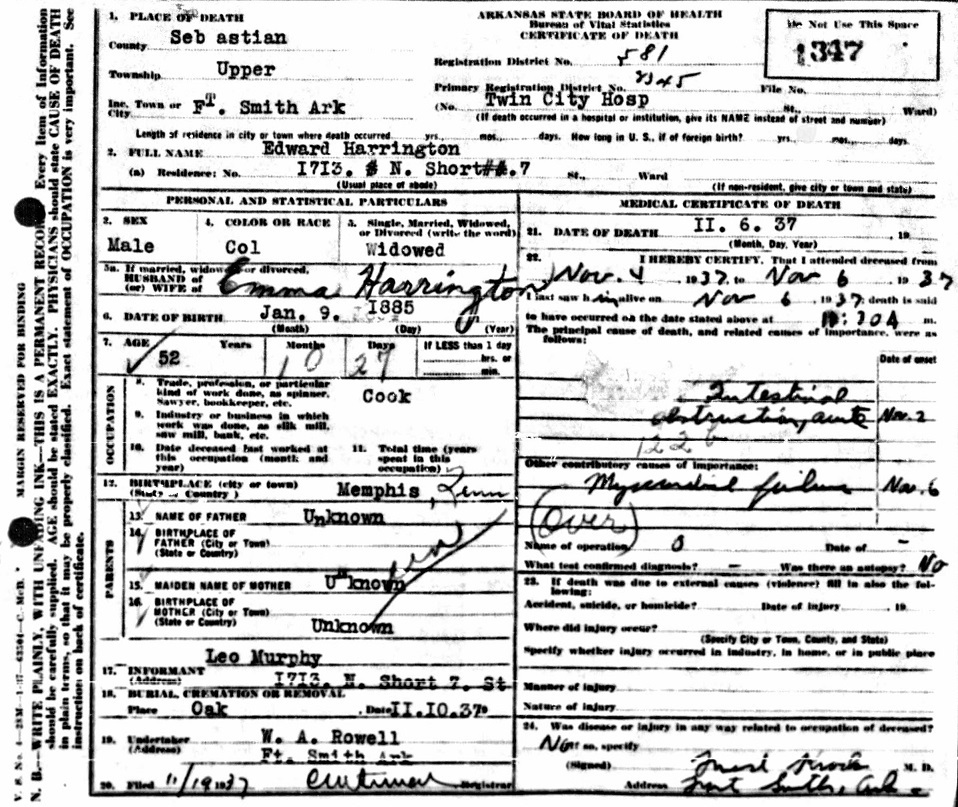 1. PLACE OF DEATH
County Seb astian
Township Upper
Inc. Town or City FT. Smith Ark
ARKANSAS STATE BOARD OF HEALTH
Bureau of Vital Statistics
CERTIFICATE OF DEATH
Registration District No. 581
Primary Registration District No. 2345
File No.
(No. Twin City Hosp St., Ward)
(If death occurred in a hospital or institution, give its NAME instead of street and number)
Do Not Use This Space
1347
Length of residence in city or town where death occurred yrs. mos. days. How long in U. S., if of foreign birth? yrs. mos. days
2. FULL NAME Edward Harrington
(a) Residence: No. 1713. N. Short 7 St., Ward
(Usual place of abode)
(If non-resident, give city or town and state)
PERSONAL AND STATISTICAL PARTICULARS
3. SEX
Male
4. COLOR OR RACE
Col
5. Single, Married, Widowed, or Divorced (write the word)
Widowed
5a. If married, widowed or divorced,
HUSBAND of
(or) WIFE of Emma Harrington
6. DATE OF BIRTH Jan. 9. 1885
(Month) (Day) (Year)
7. AGE Years Months Days If LESS than 1 day
hrs. or
min.
52 10 27
OCCUPATION
8. Trade, profession, or particular
kind of work done, as spinner,
Sawyer, bookkeeper, etc. Cook
9. Industry or business in which
work was done, as silk mill,
saw mill, bank, etc.
10. Date deceased last worked at
this occupation (month and
year)
11. Total time (years
spent in this
occupation)
12. BIRTHPLACE (city or town)
(State or Country) Memphis, Tenn
PARENTS
13. NAME OF FATHER Unknown
14. BIRTHPLACE OF
FATHER (City or Town)
(State or Country)
15. MAIDEN NAME OF MOTHER Unknown
16. BIRTHPLACE OF
MOTHER (City or Town)
(State or Country) Unknown
17. INFORMANT Leo Murphy
(Address) 1713. N. Short 7. St
18. BURIAL, CREMATION OR REMOVAL
Place Oak Date II.10.37
19. Undertaker W. A. Rowell
(Address) Ft. Smith Ark
20. Filed 11/19 1937 Registrar
MEDICAL CERTIFICATE OF DEATH
21. DATE OF DEATH II. 6. 37 , 19
(Month, Day, Year)
22. I HEREBY CERTIFY, That I attended deceased from
Nov. 4 1937, to Nov 6 1937
I last saw him alive on Nov 6, 1937; death is said
to have occurred on the date stated above at m.
The principal cause of death, and related causes of importance, were as
follows:
Date of onset
Intestinal
obstruction, acute Nov. 2
122 b
Other contributory causes of importance:
Myocardial failure Nov. 6
(Over)
Name of operation 0 Date of -
What test confirmed diagnosis? - Was there an autopsy? No
23. If death was due to external causes (violence) fill in also the fol-
lowing:
Accident, suicide, or homicide? Date of injury , 19
Where did injury occur?
(Specify City or Town, County, and State)
Specify whether injury occurred in industry, in home, or in public place
Manner of injury
Nature of injury
24. Was disease or injury in any way related to occupation of deceased?
No If so, specify
(Signed) M. D.
Address Fort Smith, Ark
V. S. No. 4
MARGIN RESERVED FOR BINDING
N. B.—WRITE PLAINLY, WITH UNFADING INK—THIS IS A PERMANENT RECORD. Every item of information
should be carefully supplied. AGE should be stated EXACTLY. PHYSICIANS should state CAUSE OF DEATH
in plain terms, so that it may be properly classified. Exact statement of OCCUPATION is very important. See
instruction on back of certificate.